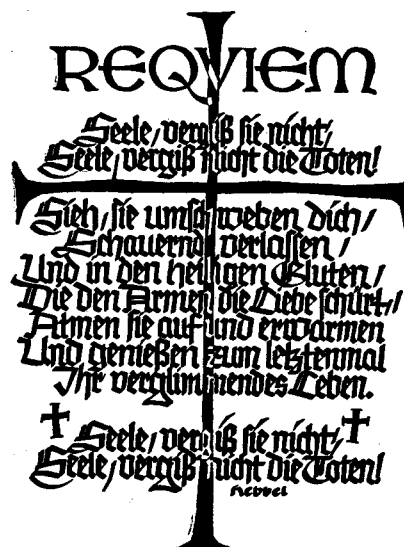 REQVIEM
Seele, vergiß sie nicht,
Seele, vergiß nicht die Toten!
Sieh, sie umschweben dich,
Schauernd, verlassen,
Und in den heiligen Gluten,
Die den Armen die Liebe schürt,
Atmen sie auf und erwarmen
Und genießen zum letztenmal
Ihr verglimmendes Leben.
Seele, vergiß sie nicht,
Seele, vergiß nicht die Toten!
Hebbel